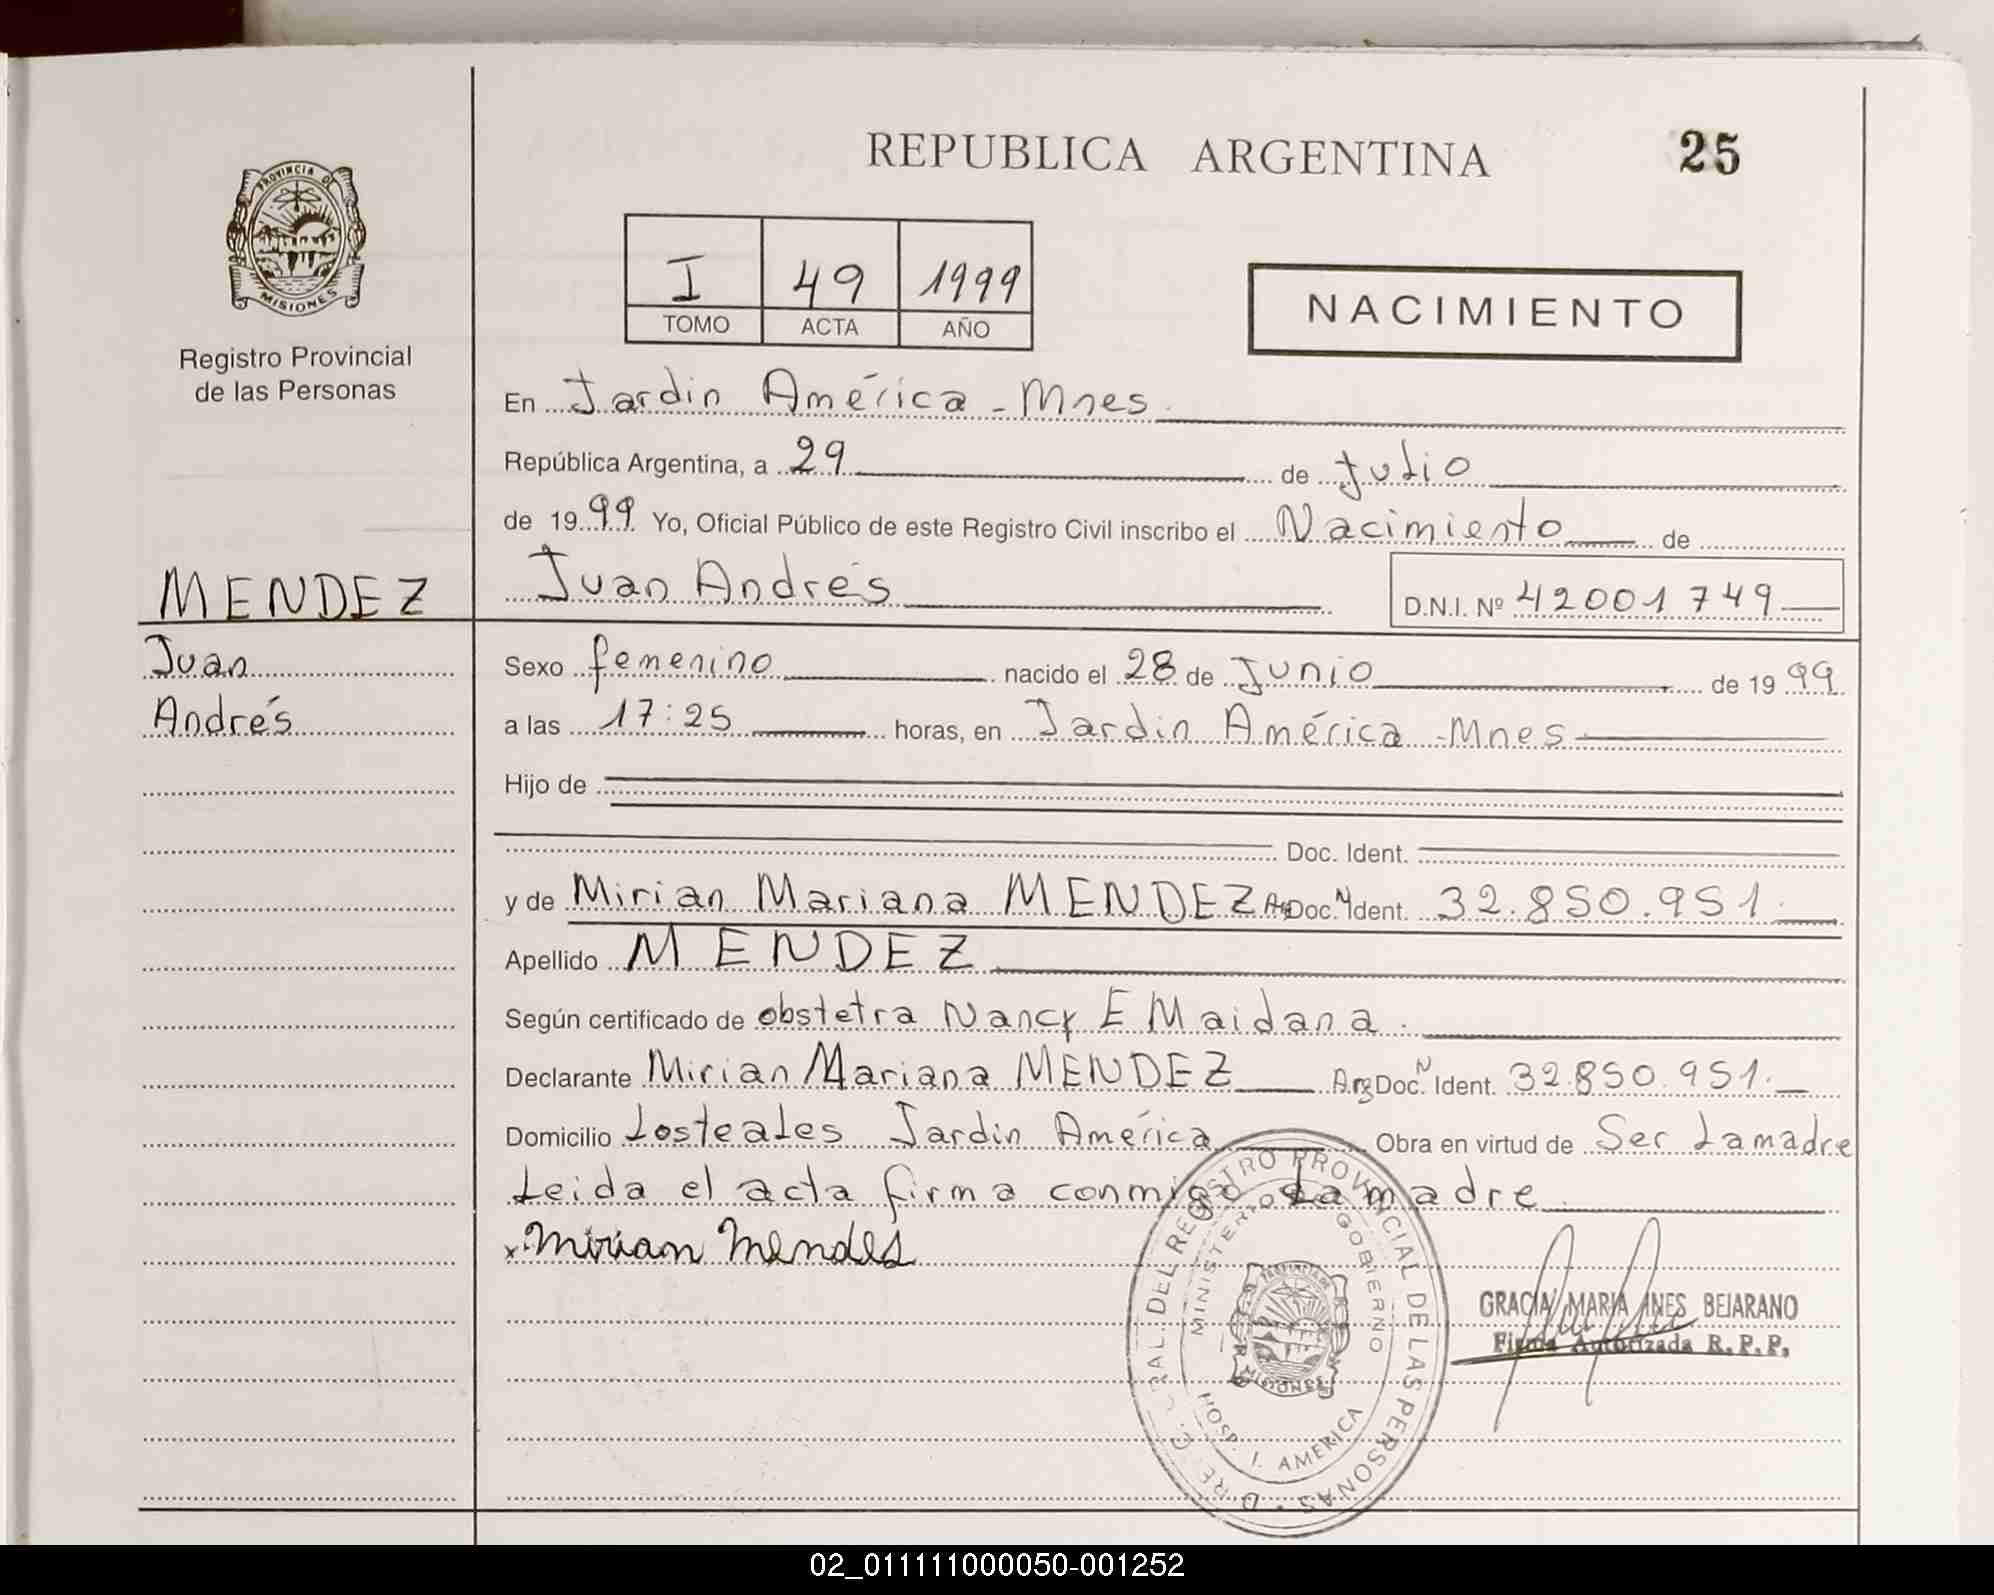 REPUBLICA ARGENTINA
25
PROVINCIA DE
MISIONES
Registro Provincial
de las Personas
I 49 1999
TOMO ACTA AÑO
NACIMIENTO
En Jardin América - Mnes.
República Argentina, a 29 de Julio
de 1999 Yo, Oficial Público de este Registro Civil inscribo el Nacimiento de
MENDEZ
Juan Andrés D.N.I. Nº 42001749
Juan
Andrés
Sexo femenino nacido el 28 de Junio de 1999
a las 17:25 horas, en Jardin América - Mnes
Hijo de
Doc. Ident.
y de Mirian Mariana MENDEZ Arg Doc. N Ident. 32.850.951.
Apellido MENDEZ
Según certificado de obstetra Nancy E Maidana.
Declarante Mirian Mariana MENDEZ Arg Doc. N Ident. 32.850.951.
Domicilio Losteales Jardin América Obra en virtud de Ser Lamadre
Leida el acta firma conmigo La madre
x Mirian Mendes
DIREC. GRAL. DEL REGISTRO PROVINCIAL DE LAS PERSONAS
MINISTERIO GOBIERNO
PROVINCIA DE
MISIONES
HOSP. I. AMERICA
GRACIA MARIA INES BEJARANO
Firma Autorizada R. P. P.
02_011111000050-001252